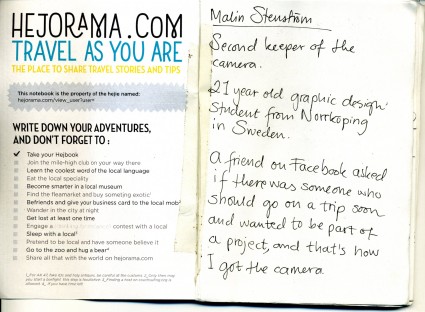 HEJORAMA.COM
TRAVEL AS YOU ARE
THE PLACE TO SHARE TRAVEL STORIES AND TIPS
This notebook is the property of the hejie named:
hejorama.com/view_user?user=
WRITE DOWN YOUR ADVENTURES,
AND DON'T FORGET TO :
Take your Hejbook
Join the mile-high club on your way there
Learn the coolest word of the local language
Eat the local speciality
Become smarter in a local museum
Find the fleamarket and buy someting exotic¹
Befriends and give your business card to the local mob²
Wander in the city at night
Get lost at least one time
Engage a contest with a local
Sleep with a local³
Pretend to be local and have someone believe it
Go to the zoo and hug a bear⁴
Share all that with the world on hejorama.com
Malin Stenström
Second keeper of the
camera.
21 year old graphic design
student from Norrköping
in Sweden.
A friend on Facebook asked
if there was someone who
should go on a trip soon
and wanted to be part of
a project, and that's how
I got the camera